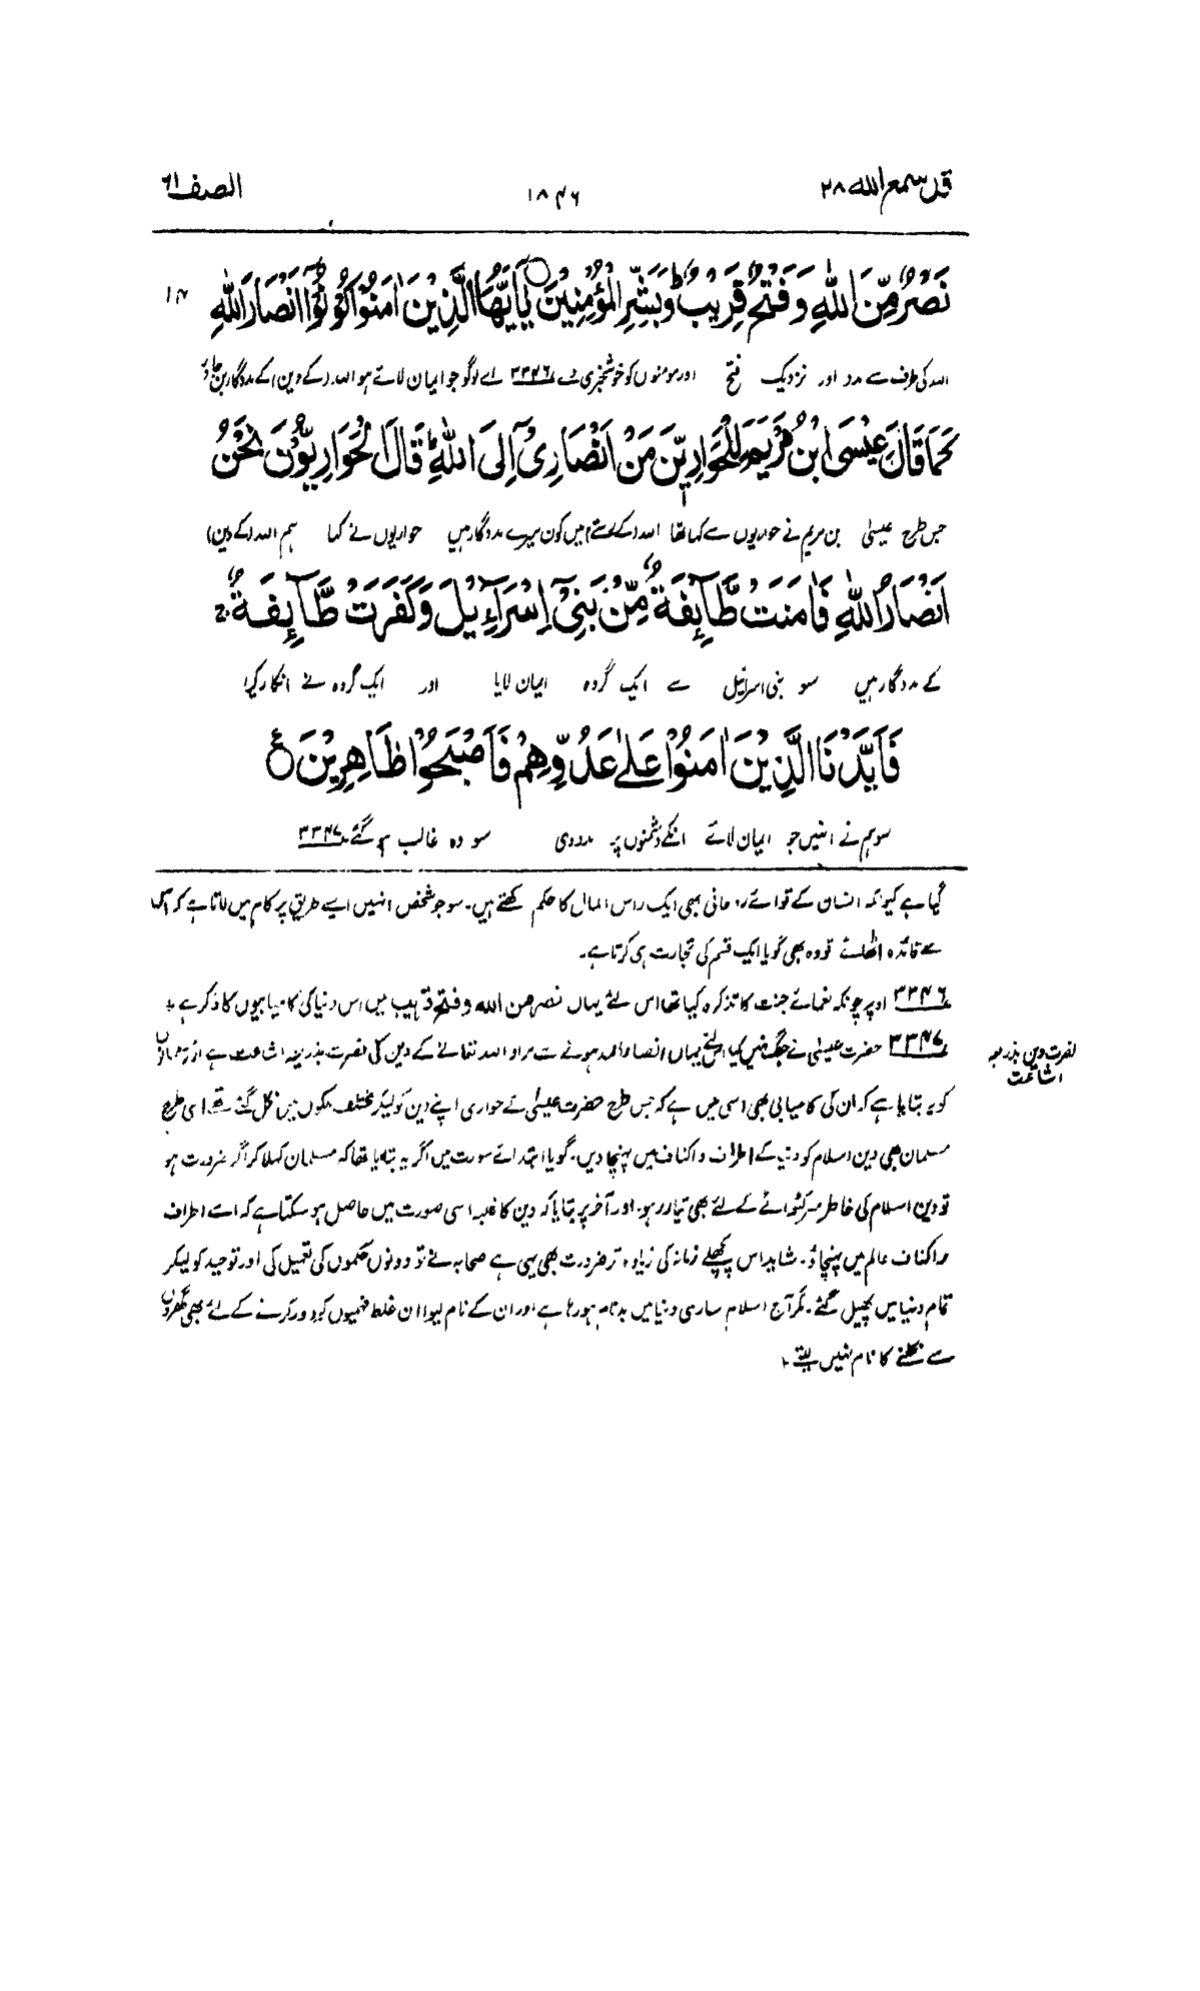 قد سمع الله ۲۸
۱۸۴۶
الصف ۶۱
نَصْرٌ مِّنَ اللّٰهِ وَفَتْحٌ قَرِيْبٌ ؕ وَبَشِّرِ الْمُؤْمِنِيْنَ ○ يٰۤاَيُّهَا الَّذِيْنَ اٰمَنُوْا كُوْنُوْۤا اَنْصَارَ اللّٰهِ
۱۴
اللہ کی طرف سے مدد اور نزدیک فتح اور مومنوں کو خوشخبری دے ۳۳۴۶ اے لوگو جو ایمان لائے ہو اللہ (کے دین) کے مددگار بن جاؤ
كَمَا قَالَ عِيْسَى ابْنُ مَرْيَمَ لِلْحَوَارِيّٖنَ مَنْ اَنْصَارِيْۤ اِلَى اللّٰهِ ؕ قَالَ الْحَوَارِيُّوْنَ نَحْنُ
جس طرح عیسیٰ بن مریم نے حواریوں سے کہا تھا اللہ (کے رستے) میں کون میرے مددگار ہیں حواریوں نے کہا ہم اللہ (کے دین)
اَنْصَارُ اللّٰهِ فَاٰمَنَتْ طَّآىِٕفَةٌ مِّنْۢ بَنِيْۤ اِسْرَآءِيْلَ وَكَفَرَتْ طَّآىِٕفَةٌ ۚ
کے مددگار ہیں سو بنی اسرائیل سے ایک گروہ ایمان لایا اور ایک گروہ نے انکار کیا
فَاَيَّدْنَا الَّذِيْنَ اٰمَنُوْا عَلٰى عَدُوِّهِمْ فَاَصْبَحُوْا ظَاهِرِيْنَ ع
سو ہم نے انہیں جو ایمان لائے انکے دشمنوں پر مدد دی سو وہ غالب ہو گئے ۳۳۴۷
گیا ہے کیونکہ انسان کے قوائے روحانی بھی ایک راس المال کا حکم رکھتے ہیں۔ سو جو شخص انہیں ایسے طریق پر کام میں لاتا ہے کہ ان
سے فائدہ اٹھائے تو وہ بھی گویا ایک قسم کی تجارت ہی کرتا ہے۔
۳۳۴۶ اوپر چونکہ نعمائے جنت کا تذکرہ کیا تھا اس لئے یہاں نصر من الله و فتح قریب میں اس دنیا کی کامیابیوں کا ذکر ہے +
۳۳۴۷ حضرت عیسیٰ نے جنگ نہیں کی اس لئے یہاں انصار اللہ ہونے سے مراد اللہ تعالےٰ کے دین کی نصرت بذریعہ اشاعت ہے اور مسلمانوں
نصرت دین بذریعہ
اشاعت
کو یہ بتایا ہے کہ ان کی کامیابی بھی اسی میں ہے کہ جس طرح حضرت عیسیٰ کے حواری اپنے دین کو لیکر مختلف ملکوں میں نکل گئے تھے اسی طرح
مسلمان بھی دین اسلام کو دنیا کے اطراف و اکناف میں پہنچا دیں۔ گویا ابتدائے سورت میں اگر یہ بتایا تھا کہ مسلمان کہلا کر اگر ضرورت ہو
تو دین اسلام کی خاطر سر کٹوانے کے لئے بھی تیار رہو، اور آخر پر بتایا کہ دین کا غلبہ اسی صورت میں حاصل ہو سکتا ہے کہ اسے اطراف
و اکناف عالم میں پہنچاؤ۔ شاید اس پچھلے زمانہ کی زیادہ تر ضرورت بھی یہی ہے صحابہ نے تو دونوں حکموں کی تعمیل کی اور توحید کو لیکر
تمام دنیا میں پھیل گئے۔ مگر آج اسلام ساری دنیا میں بدنام ہو رہا ہے اور ان کے نام لیوا ان غلط فہمیوں کو دور کرنے کے لئے بھی گھروں
سے نکلنے کا نام نہیں لیتے +